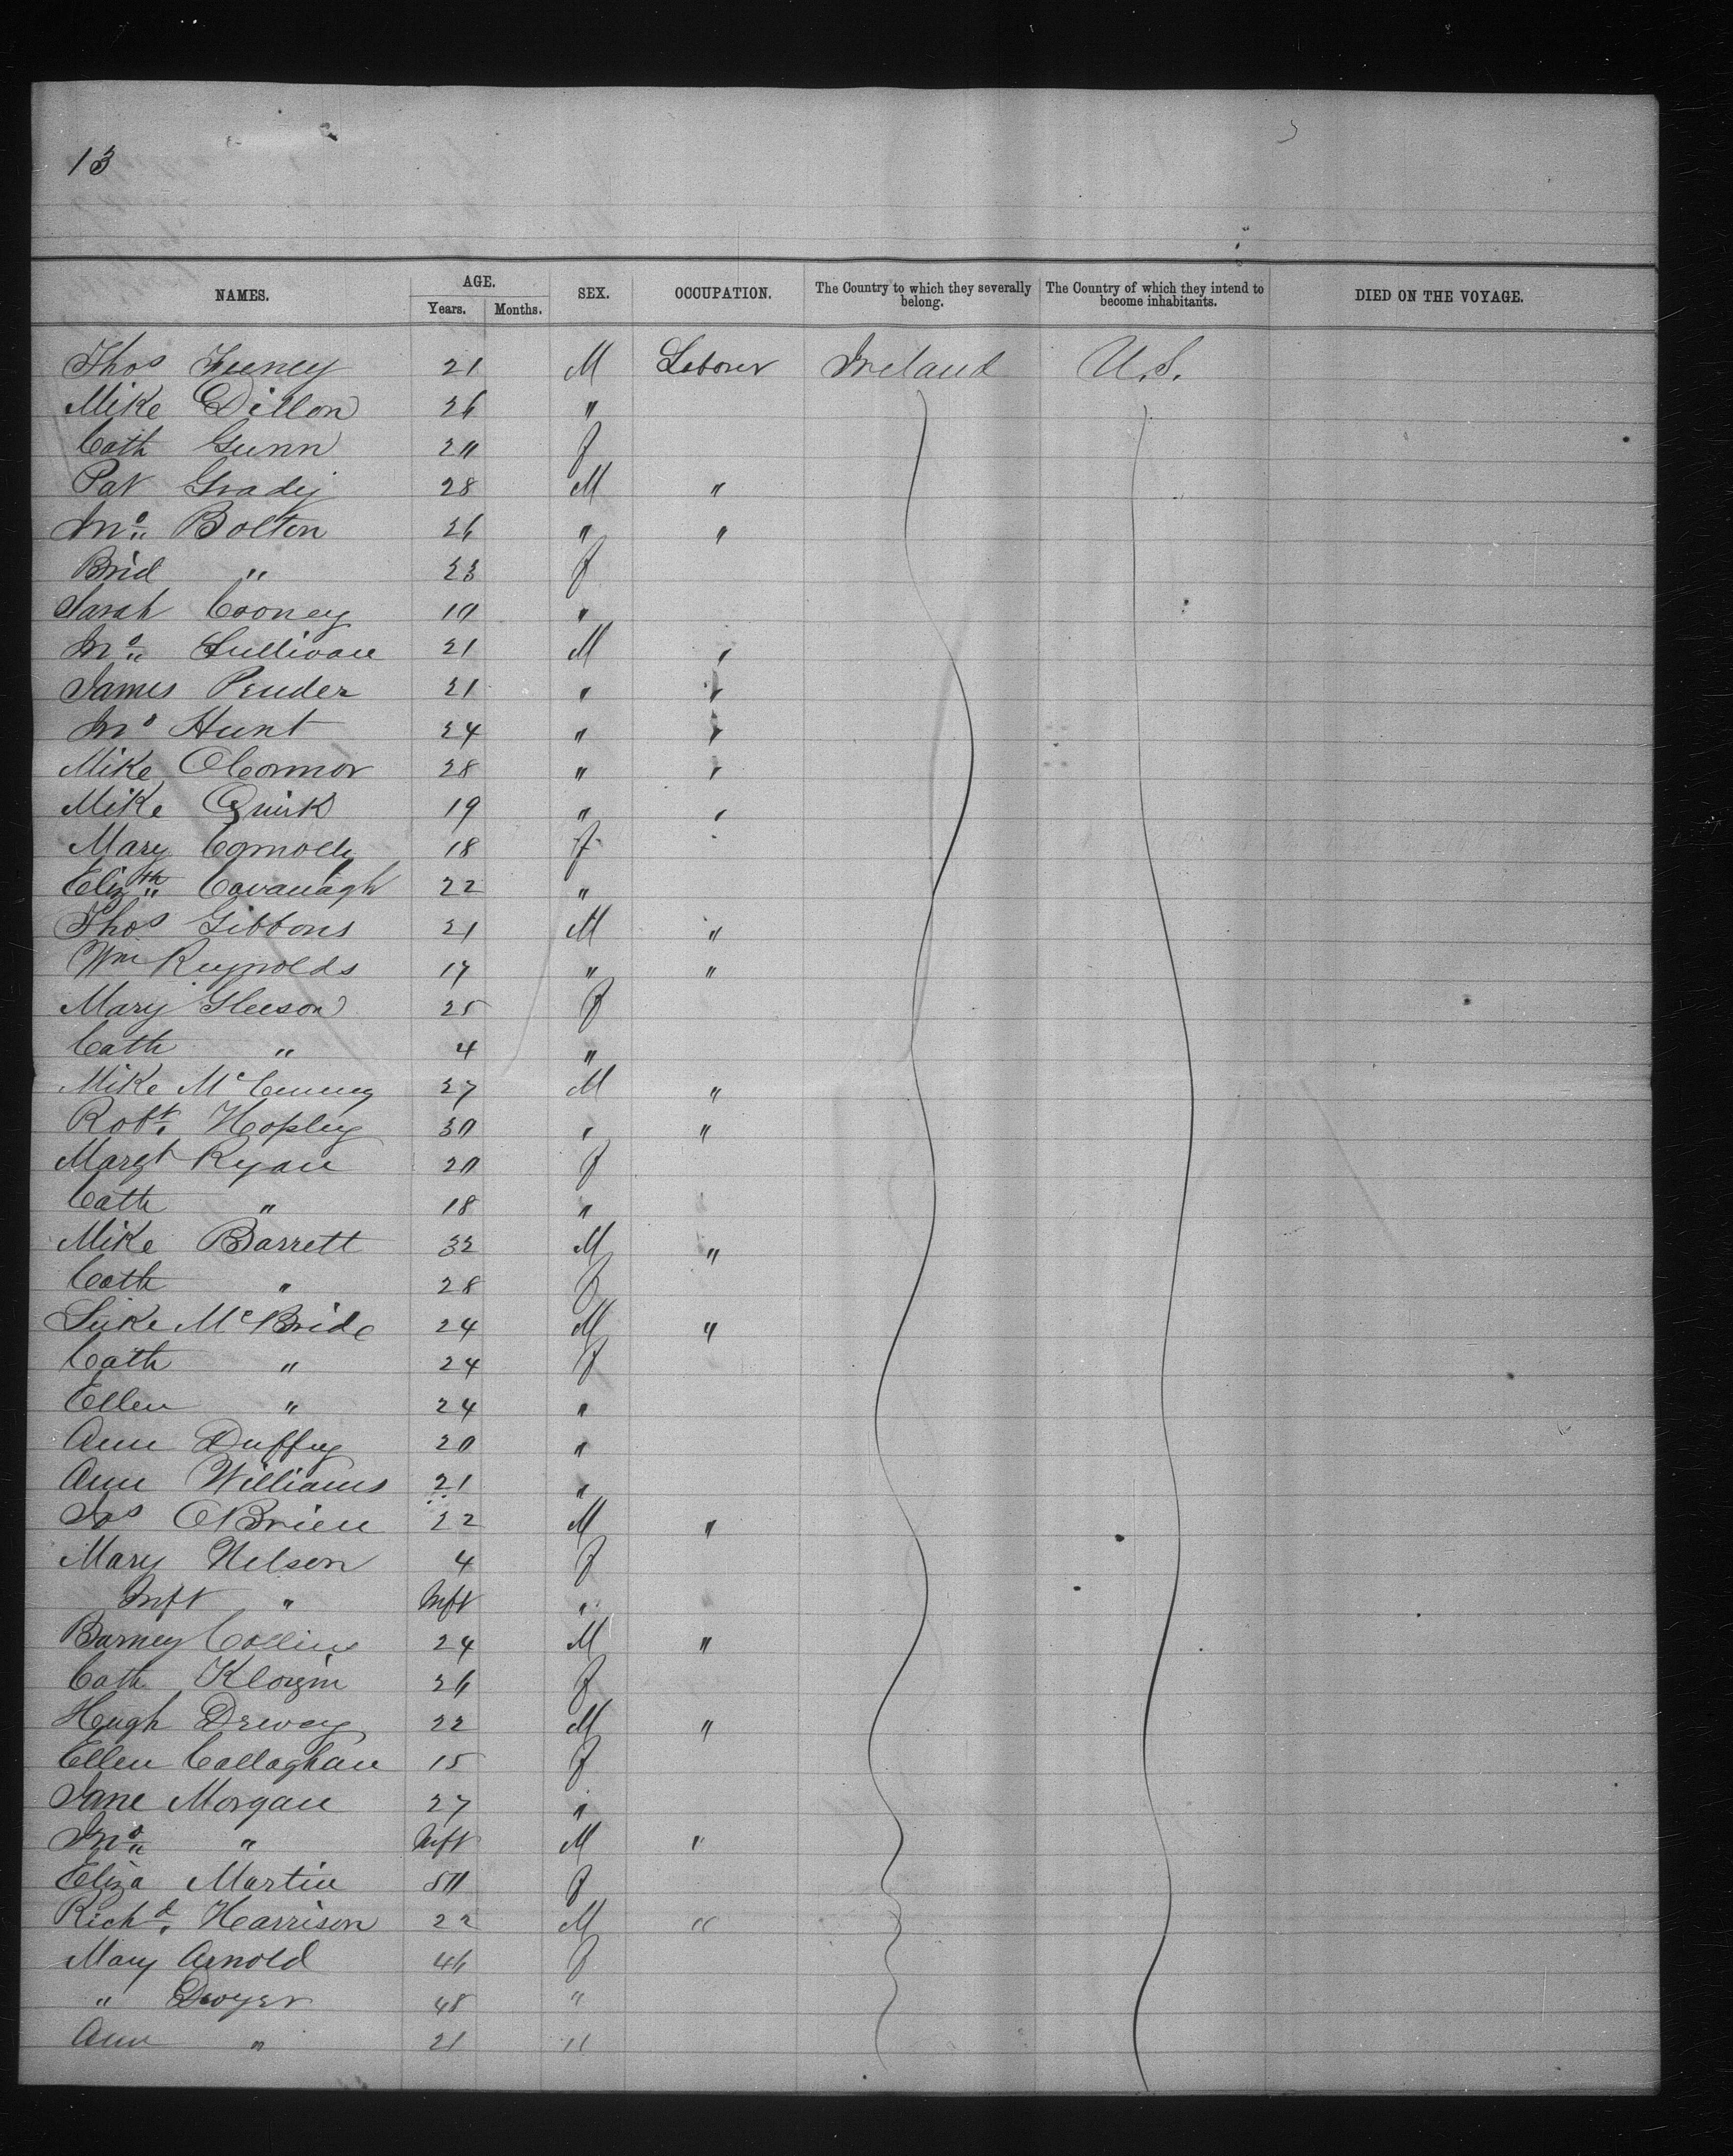 13
NAMES. AGE. Years. Months. SEX. OCCUPATION. The Country to which they severally belong. The Country of which they intend to become inhabitants. DIED ON THE VOYAGE.
Thos Feeney 21 M Laborer Ireland U.S.
Mike Dillon 26 "
Cath Gunn 20 f
Pat Grady 28 M "
Jno. Bolton 26 " "
Brid " 23 f
Sarah Cooney 10 "
Jno. Sullivan 21 M "
James Pender 21 " "
Jno Hunt 24 " "
Mike OConnor 28 " "
Mike Quirk 19 " "
Mary Connolly 18 f
Elizth Cavanagh 22 "
Thos Gibbons 21 M "
Wm Reynolds 17 " "
Mary Gleeson 25 f
Cath " 4 "
Mike 27 M "
Robt. Hopley 30 " "
Margt Ryan 20 f
Cath " 18 "
Mike Barrett 32 M "
Cath " 28 f
Luke McBride 24 M "
Cath " 24 f
Ellen " 24 "
Ann Duffy 20 "
Ann Williams 21 "
Jas OBrien 22 M "
Mary Nelson 4 f
Inft " Inft "
Barney Collins 24 M "
Cath 26 f
Hugh 22 M "
Ellen Callaghan 15 f
Jane Morgan 27 "
Jno. " Inft M "
Eliza Martin 50 f
Richd. Harrison 22 M "
Mary Arnold 46 f
" Dwyer 48 "
Ann " 21 "